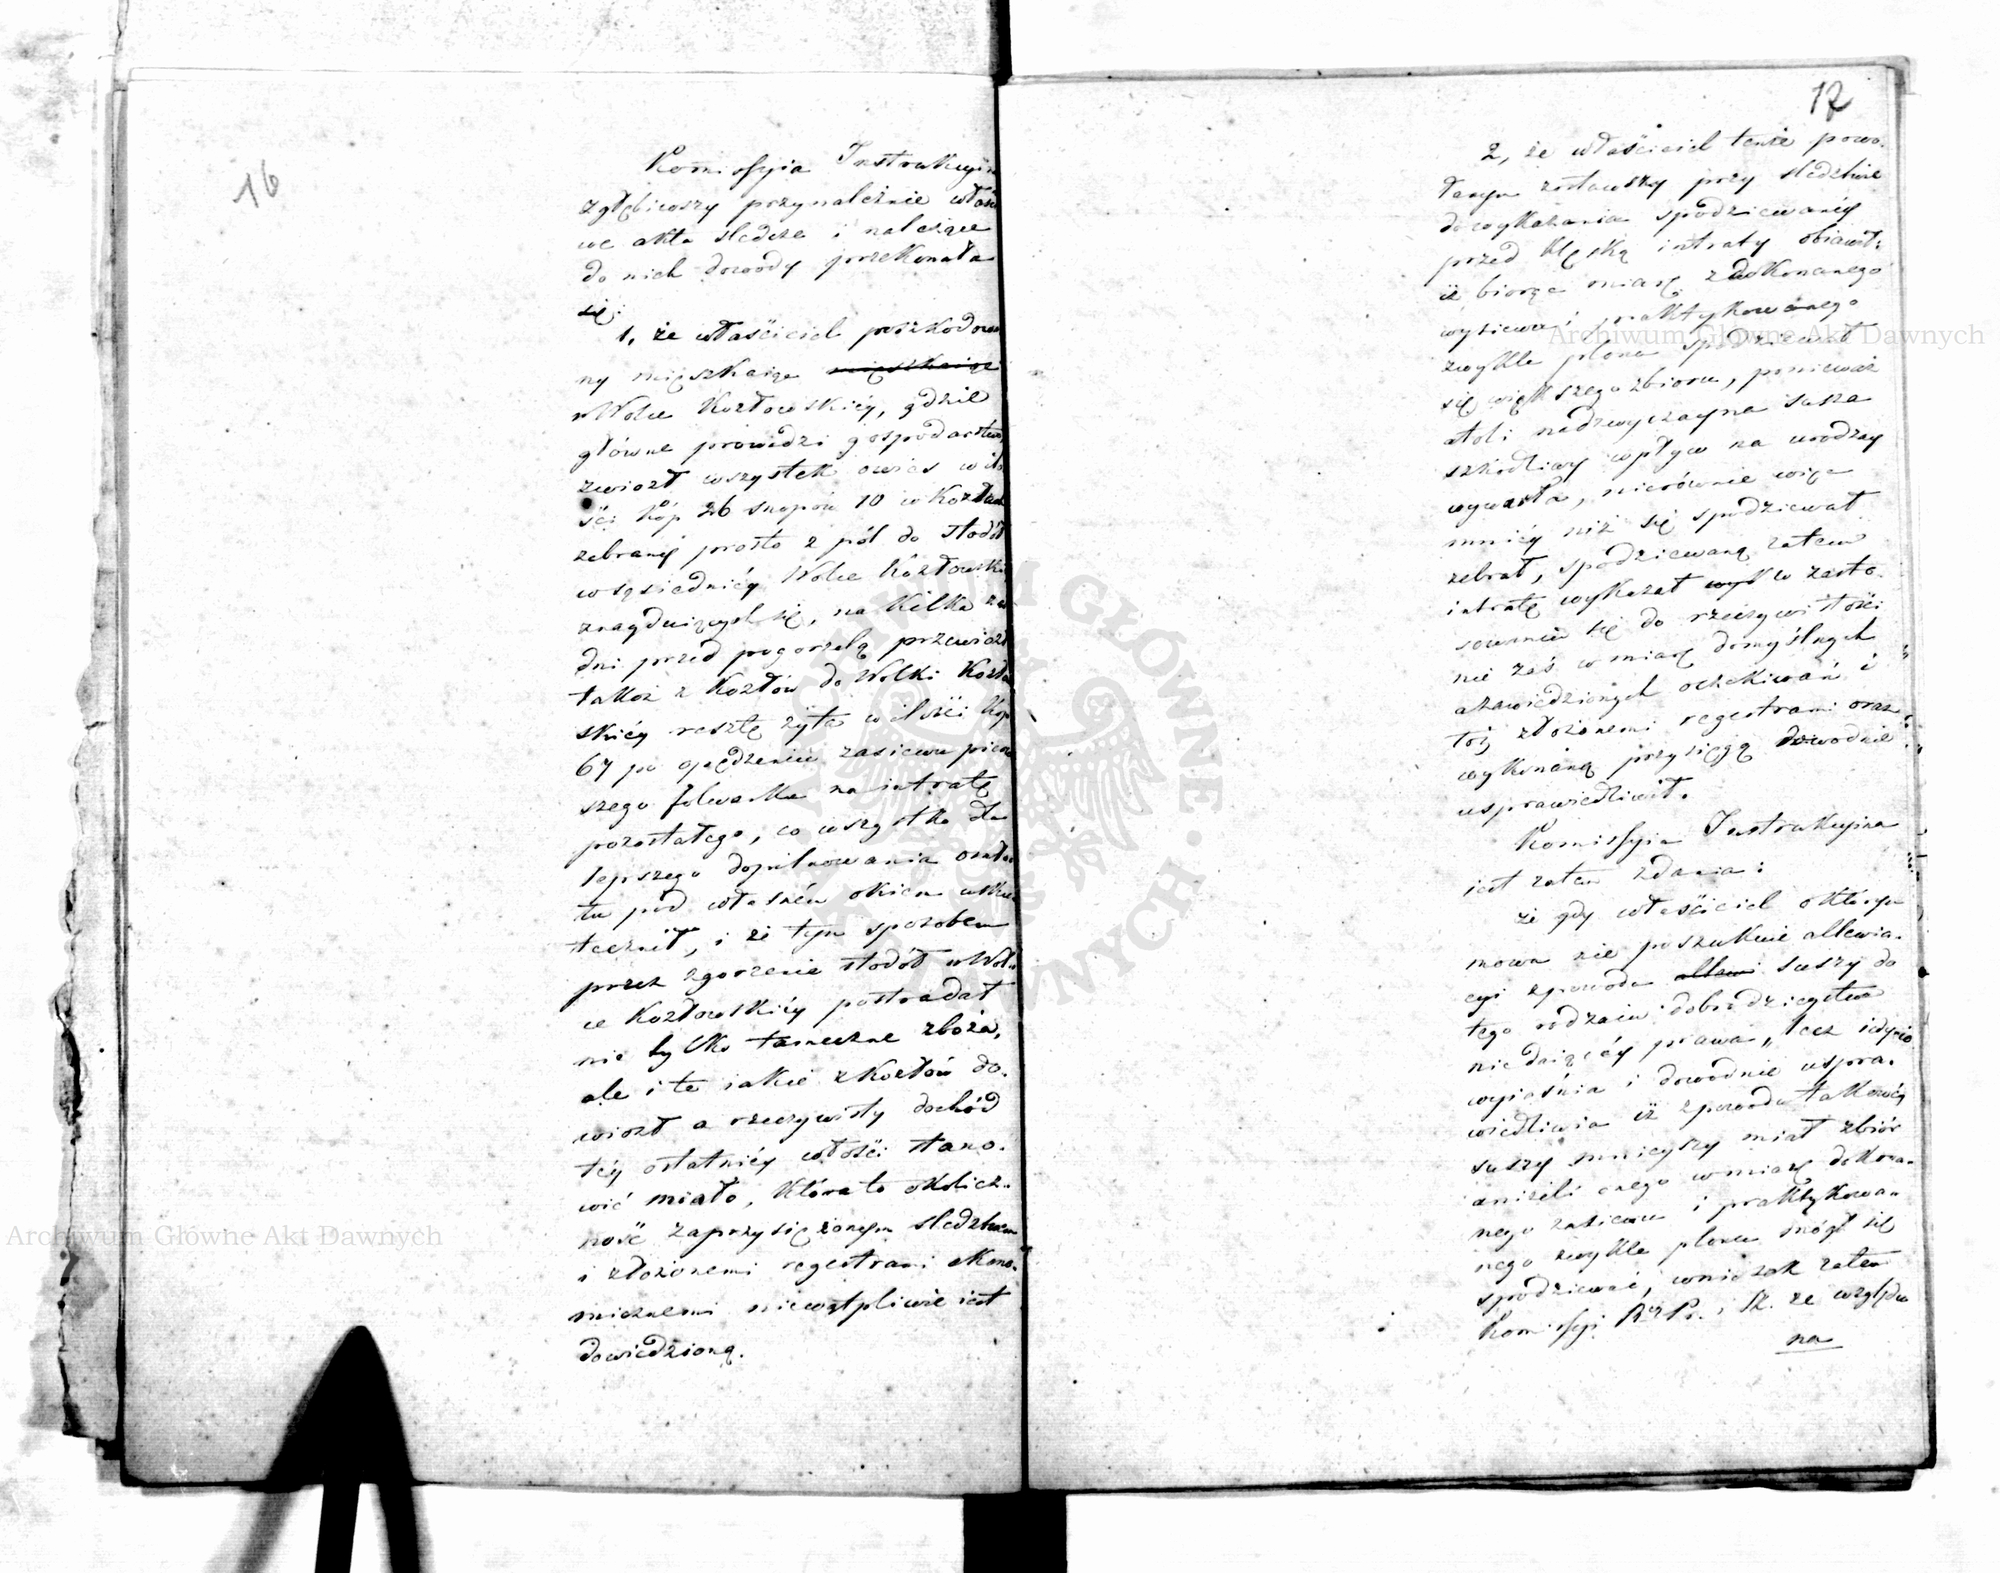 16
Komissyia Instrukcyin
zgłębiwszy przynależnie właści
we akta śledcze i należące
do nich dowody przekonała
się:
1, że właściciel poszkodowa
ny mięszkaiąc mięszkaiąc
w Wolce Kozłowskiéy, gdzie
główne prowadzi gospodarstwo
zwiozł wszystek owies w ilo
ści kóp 26 snopów 10 w Kozłach
zebrany prosto z pól do stodół
w sąsiedniéy Wolce Kozłowski
znayduiących się, na kilka zaś
dni przed pogorzelą przewiozł
takoż z Kozłów do Wolki Kozło
skiéy resztę żyta w ilości kóp
67 po opędzeniu zasiewu pierw
szego folwarku na intratę
pozostałego, co wszystko dla
lepszego dopilnowania omłó
tu pod własném okiem usku
tecznił, i że tym sposobem
przez zgorzenie stodół w Wol
ce Kozłowskiéy postradał
nie tylko tameczne zboża,
ale i te iakie z Kozłów do
wiozł a rzeczywisty dochód
téy ostatniéy włości stano
wić miało, która to okolicz
ność zaprzysiężonym śledztwem
i złożonemi regestrami ekono
micznemi niewątpliwie iest
dowiedzioną.
17
2, że właściciel tenże powo
łanym zostawszy przy śledztwie
do wykazania spodziewanéy
przed klęską intraty obiawił:
iż biorąc miarę z dokonanego
wysiewu i praktykowanego
zwykle plonu spodziewał
się większego zbioru, ponieważ
atoli nadzwyczayna susza
szkodliwy wpływ na urodzay
wywarła, nierównie więc
mniéy niż się spodziewał
zebrał, spodziewaną zatem
intratę wykazał wyk w zasto
sowaniu się do rzeczywistości
nie zaś w miarę domyślnych
a zawiedzionych oczekiwań i
toż złożonemi regestrami oraz
wykonaną przysięgą dowodnie
usprawiedliwił.
Komissyia Instrukcyina
iest zatem zdania:
że gdy właściciel o którym
mowa nie poszukuie allewia
cyi z powodu allewi suszy do
tego rodzaiu dobrodzieystwa
nie daiącéy prawa, lecz iedynie
wyiaśnia i dowodnie uspra
wiedliwia iż z powodu takowéy
suszy mnieyszy miał zbiór
aniżeli onego w miarę dokona
nego zasiewu i praktykowa
nego zwykle plonu mógł się
spodziewać, wniosek zatem
Komissyi Rz. Pr. i Sk. ze względu
na
Archiwum Główne Akt Dawnych
Archiwum Główne Akt Dawnych
ARCHIWUM GŁÓWNE AKT DAWNYCH